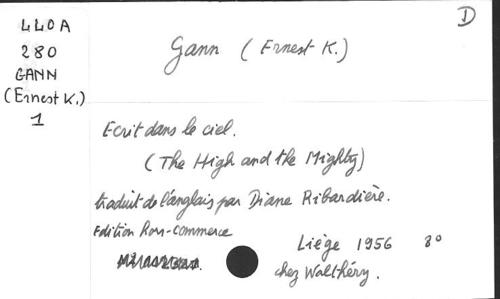 440A
280
GANN
(Ernest K.)
1
D
Gann (Ernest K.)
Ecrit dans le ciel.
(The High and the Mighty)
traduit de l'anglais par Diane Ribardière.
Edition hors-commerce
Liège 1956 8°
chez Walthéry.